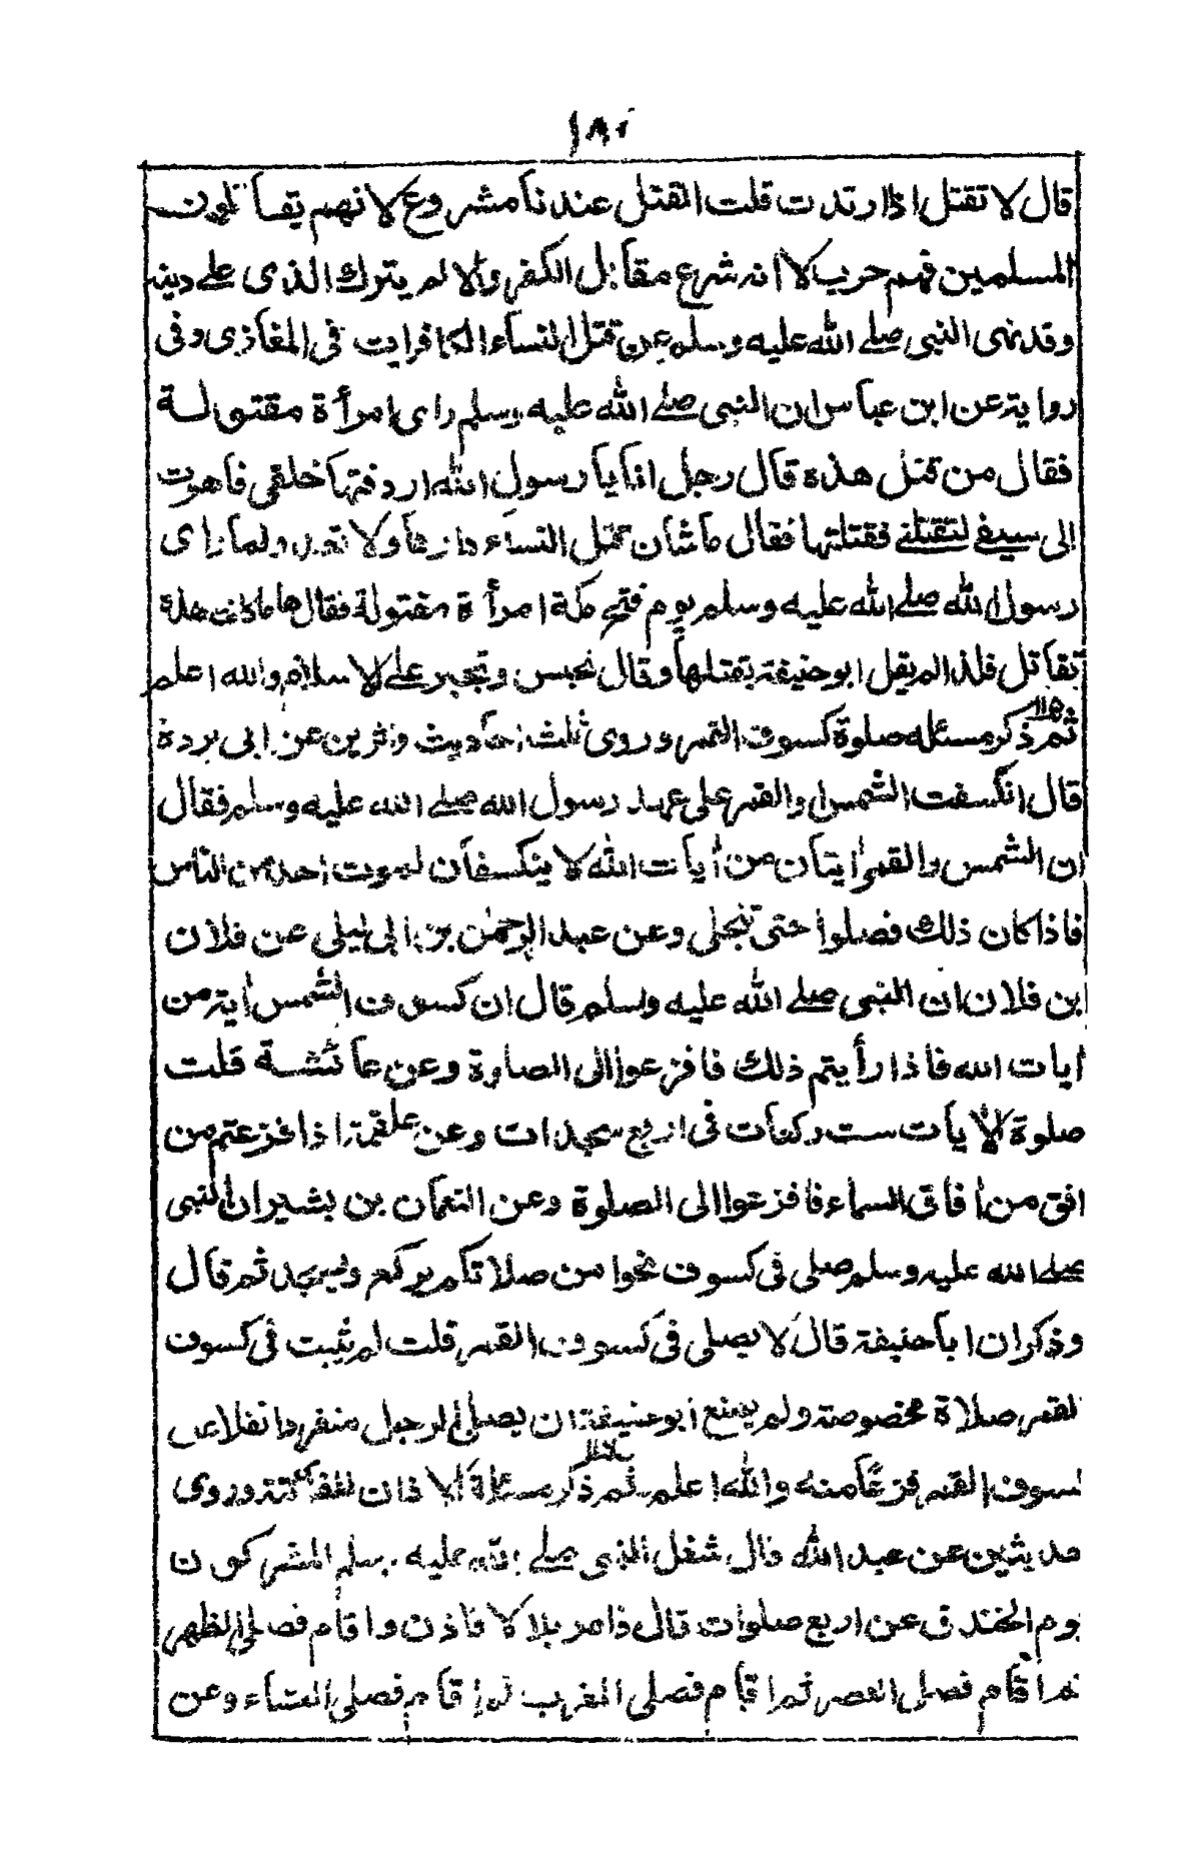 ١٨٠
قال لا تقتل اذا ارتدت قلت القتل عندنا مشروع لانهم يقاتلون
المسلمين فهم حرب لا انه شرع مقابل الكفر والا لم يترك الذى على دينه
وقد نهى النبى صلے الله عليه وسلم عن قتل النساء الكافرات فى المغازى وفى
رواية عن ابن عباس ان النبى صلے الله عليه وسلم راى امرأة مقتولة
فقال من قتل هذه قال رجل انا يا رسول الله اردفتها خلفى فاهوت
الى سيفے لتقتلنے فقتلتها فقال ما شان قتل النساء وارها ولا تعد ولما راى
رسول الله صلے الله عليه وسلم يوم فتح مكة امرأة مقتولة فقال ها ما كانت هذة
تقاتل فلذا لم يقل ابو حنيفة بقتلها وقال تحبس وتجبر على الاسلام والله اعلم
ثم ذكر مسئله صلوة كسوف القمر وروى ثلث احاديث واثرين عن ابى بردة
قال انكسفت الشمس او القمر على عهد رسول الله صلے الله عليه وسلم فقال
ان الشمس والقمر اٰيتان من اٰيات الله لا ينكسفان لموت احد من الناس
فاذا كان ذلك فصلوا حتى تنجلى وعن عبد الرحمٰن بن ابى ليلى عن فلان
ابن فلان ان النبى صلے الله عليه وسلم قال ان كسوف الشمس اٰية من
اٰيات الله فاذا رأيتم ذلك فافزعوا الى الصلوة وعن عائشة قلت
صلوة الاٰيات ست ركعات فى اربع سجدات وعن علقمة اذا فزعتم من
افق من اٰفاق السماء فافزعوا الى الصلوة وعن النعمان بن بشير ان النبى
صلے الله عليه وسلم صلى فى كسوف نحوا من صلاتكم يركع ويسجد ثم قال
وذكر ان ابا حنيفة قال لا يصلى فى كسوف القمر قلت لم يثبت فى كسوف
القمر صلاة مخصوصة ولم يمنع ابو حنيفة ان يصلى الرجل منفردا نفلا عن
كسوف القمر فزعًا منه والله اعلم ثم ذكر مسئلة الاذان للفائتة وروى
حديثين عن عبد الله قال شغل النبى صلے الله عليه وسلم المشركون
يوم الخندق عن اربع صلوات قال فامر بلالا فاذن واقام فصلى الظهر
ثم اقام فصلى العصر ثم اقام فصلى المغرب ثم اقام فصلى العشاء وعن